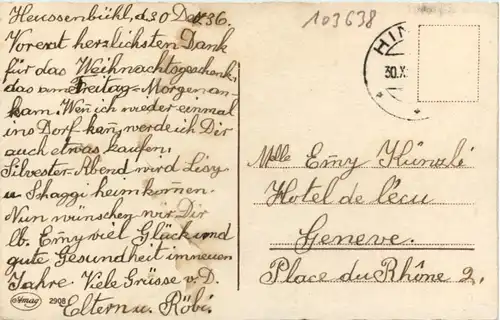 Heussenbühl, d. 30 Dez 36.
Vorerst herzlichsten Dank
für das Weihnachtsgeschenk,
das am Freitag-Morgen an-
kam. Wen ich wieder einmal
ins Dorf ken, werde ich Dir
auch etwas kaufen.
Silvester-Abend wird Lisy
u Schaggi heimkomen.
Nun wünschen wir Dir
lb. Emy viel Glück und
gute Gesundheit im neuen
Jahre. Viele Grüsse v. D.
Eltern u. Röbi.
Amag 2908
103638
HIN
30.X
Mlle Emy Künzli
Hotel de l'écu
Geneve.
Place du Rhône 2.